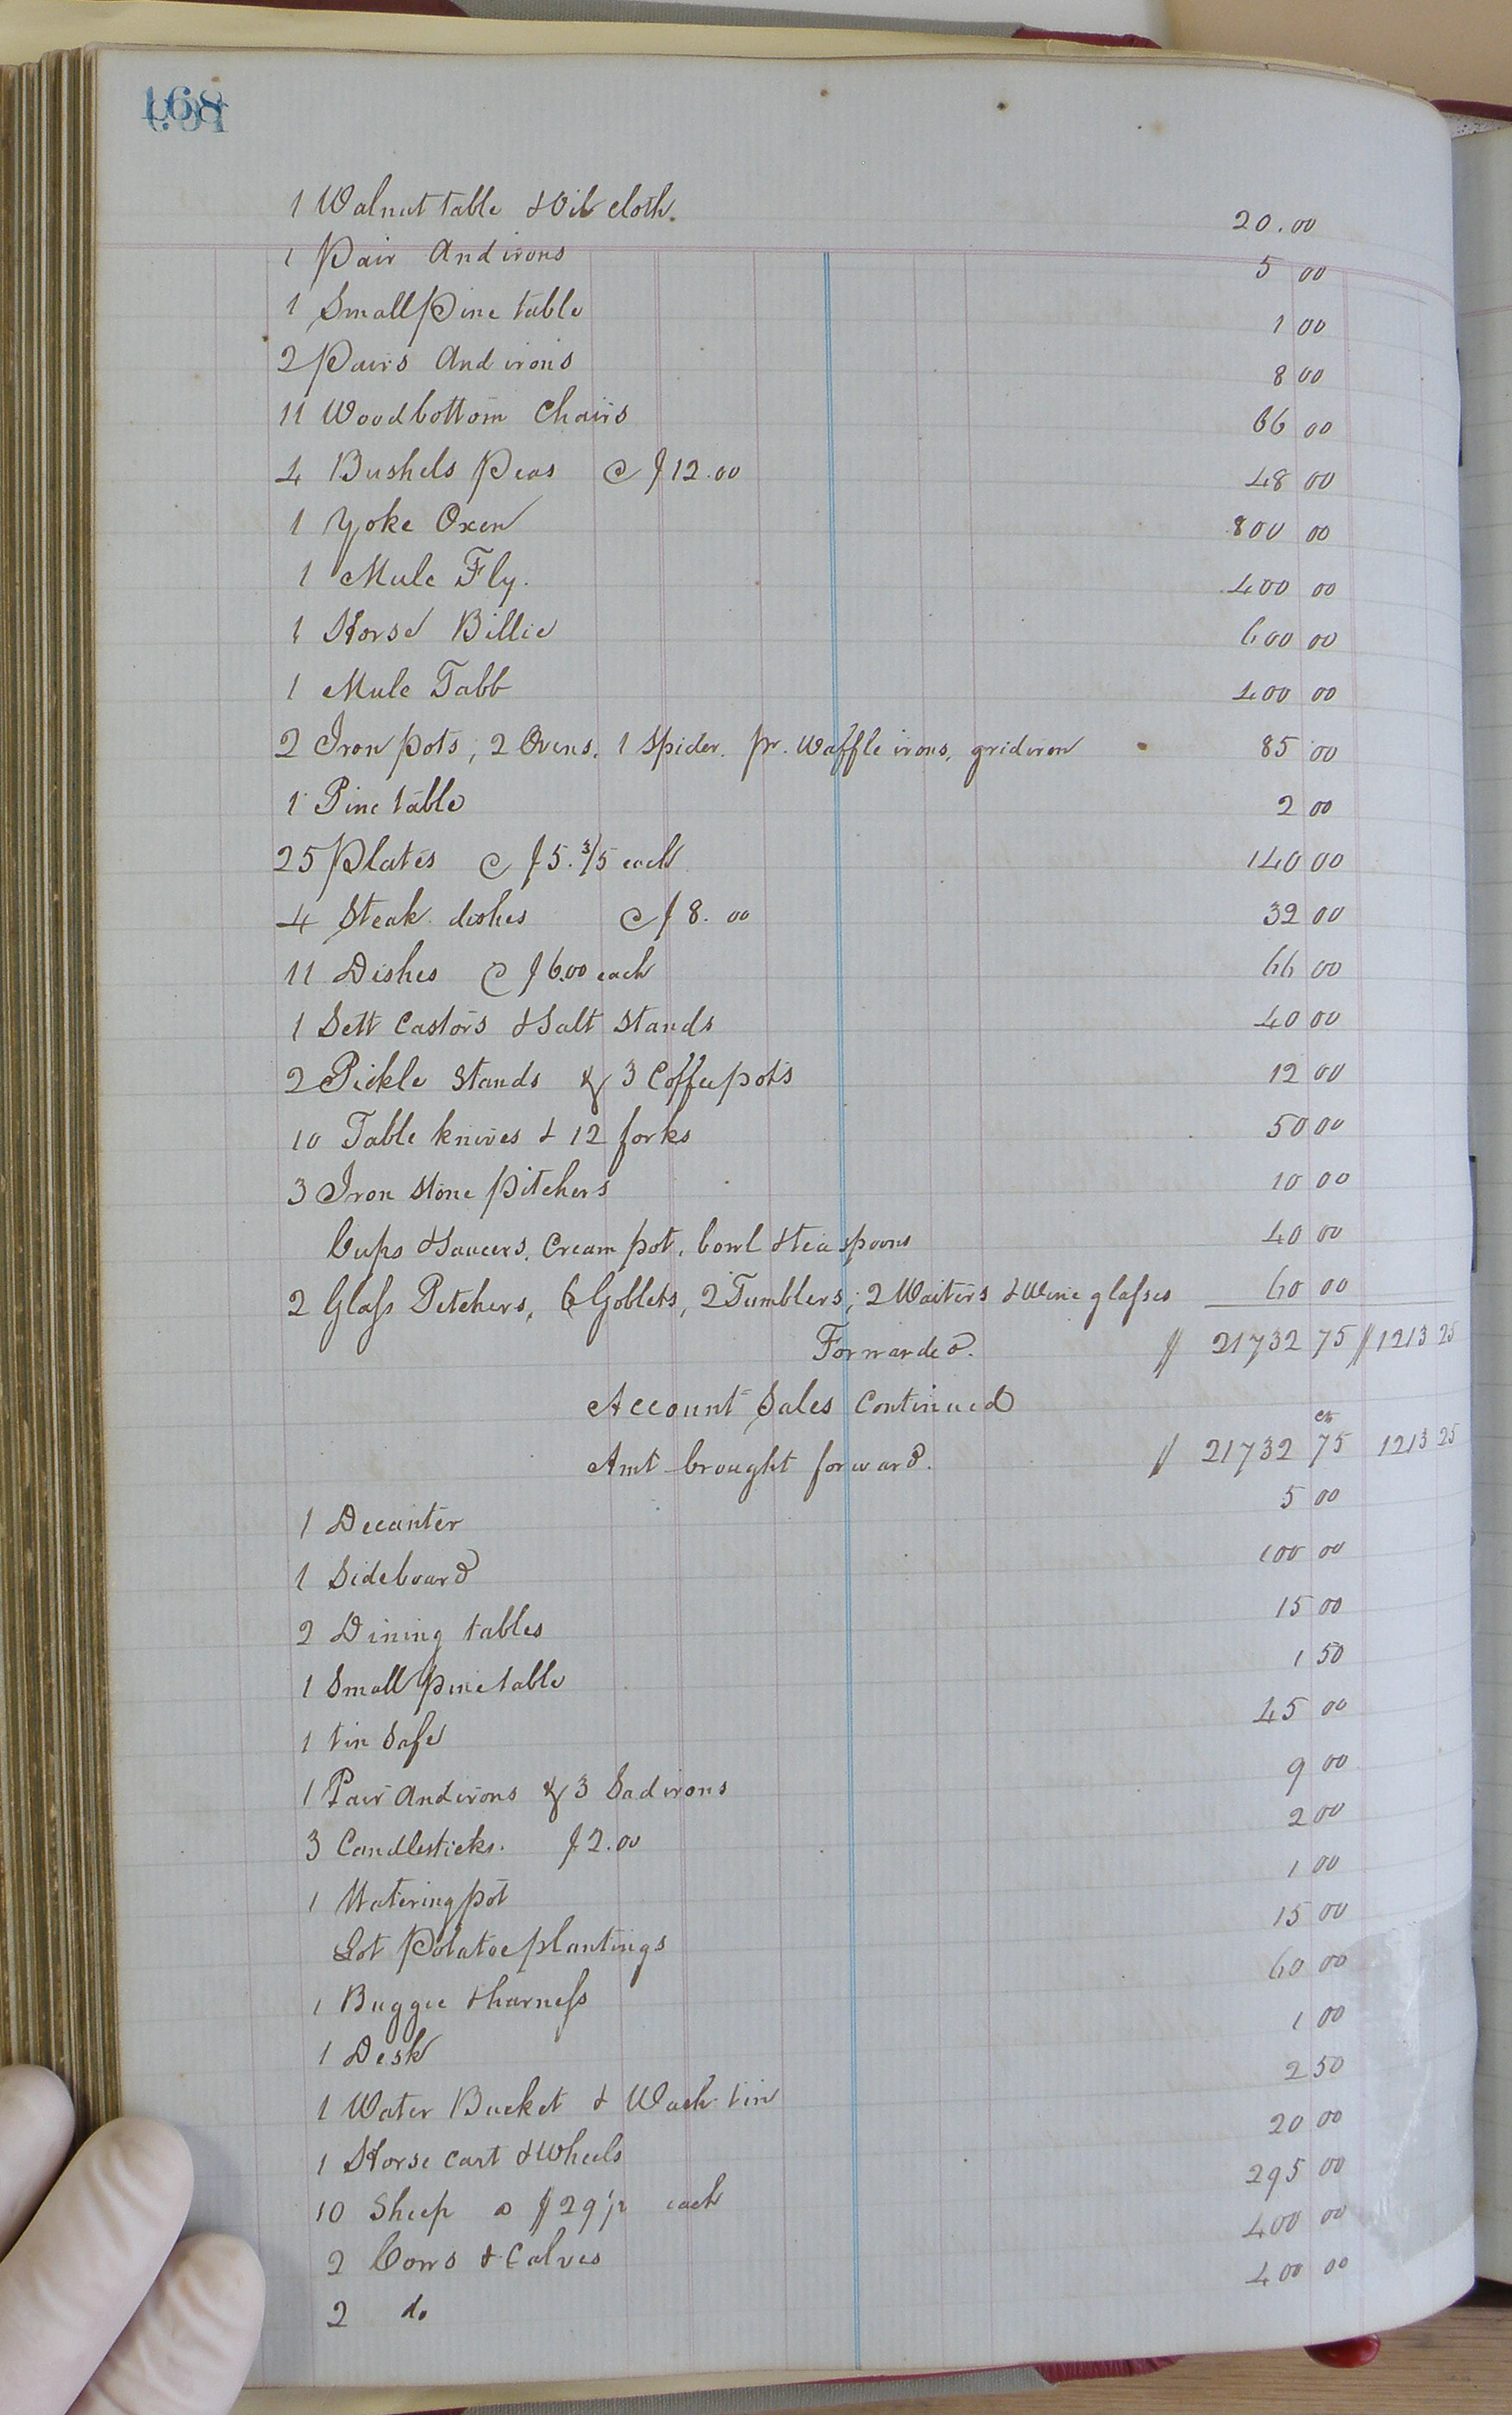 168
1 Walnut table & Oil cloth. 20.00
1 Pair Andirons 5 00
1 Small Pine table 1 00
2 Pairs Andirons 8 00
11 Woodbottom Chairs 66 00
4 Bushels Peas @ $12.00 48 00
1 Yoke Oxen 800 00
1 Mule Fly. 400 00
1 Horse Billie 600 00
1 Mule Tabb 400 00
2 Iron pots, 2 Ovens, 1 Spider, pr. Waffle irons, gridiron 85 00
1 Pine table 2 00
25 Plates @ $5.3/5 each 140 00
4 Steak dishes @ $8.00 32 00
11 Dishes @ $6.00 each 66 00
1 Sett Castors & Salt Stands 40 00
2 Pickle Stands & 3 Coffeepots 12 00
10 Table knives & 12 forks 50 00
3 Iron Stone Pitchers 10 00
Cups & Saucers, Cream pot, bowl & tea spoons 40 00
2 Glass Pitchers, 6 Goblets, 2 Tumblers, 2 Waiters & Wine glasses 60 00
Forwarded. $ 21732 75 $ 1213 25
Account Sales Continued
Amt brought forward. $ 21732 75 1213 25
1 Decanter 5 00
1 Sideboard 100 00
2 Dining tables 15 00
1 Small pine table 1 50
1 tin Safe 45 00
1 Pair Andirons & 3 Sadirons 9 00
3 Candlesticks. $2.00 2 00
1 Watering pot 1 00
Lot Potatoe plantings 15 00
1 Buggie & harness 60 00
1 Desk 1 00
1 Water Bucket & Wash tin 2 50
1 Horse Cart & Wheels 20 00
10 Sheep @ $29 1/2 each 295 00
2 Cows & Calves 400 00
2 do 400 00